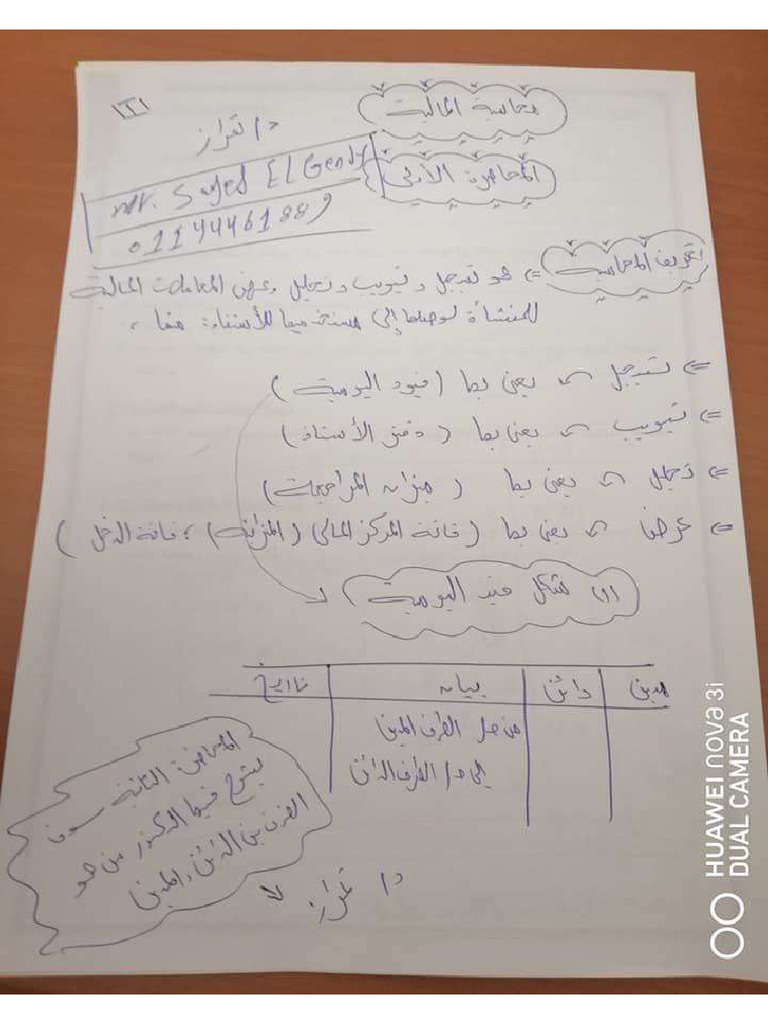 محاسبة المالية
د/ تمراز
المحاضرة الأولى
mr. Sayed El Gendy
01144461889
تعريف المحاسبة => هو تسجيل و تبويب و تحليل وعرض المعاملات المالية
للمنشأة لتوصيلها إلى مستخدميها للأستفادة منها ،
=> تسجيل يعني بها (قيود اليومية)
=> تبويب يعني بها (دفتر الأستاذ)
=> تحليل يعني بها (ميزان المراجعة)
=> عرض يعني بها (قائمة المركز المالي (الميزانية) ، قائمة الدخل)
(١) شكل قيد اليومية
مدين دائن بيان تاريخ
من حـ/ الطرف المدين
إلى حـ/ الطرف الدائن
المحاضرة الثانية سوف
يشرح فيها الدكتور من هو
الطرف بين الدائن والمدين
د/ تمراز
HUAWEI nova 3i
DUAL CAMERA